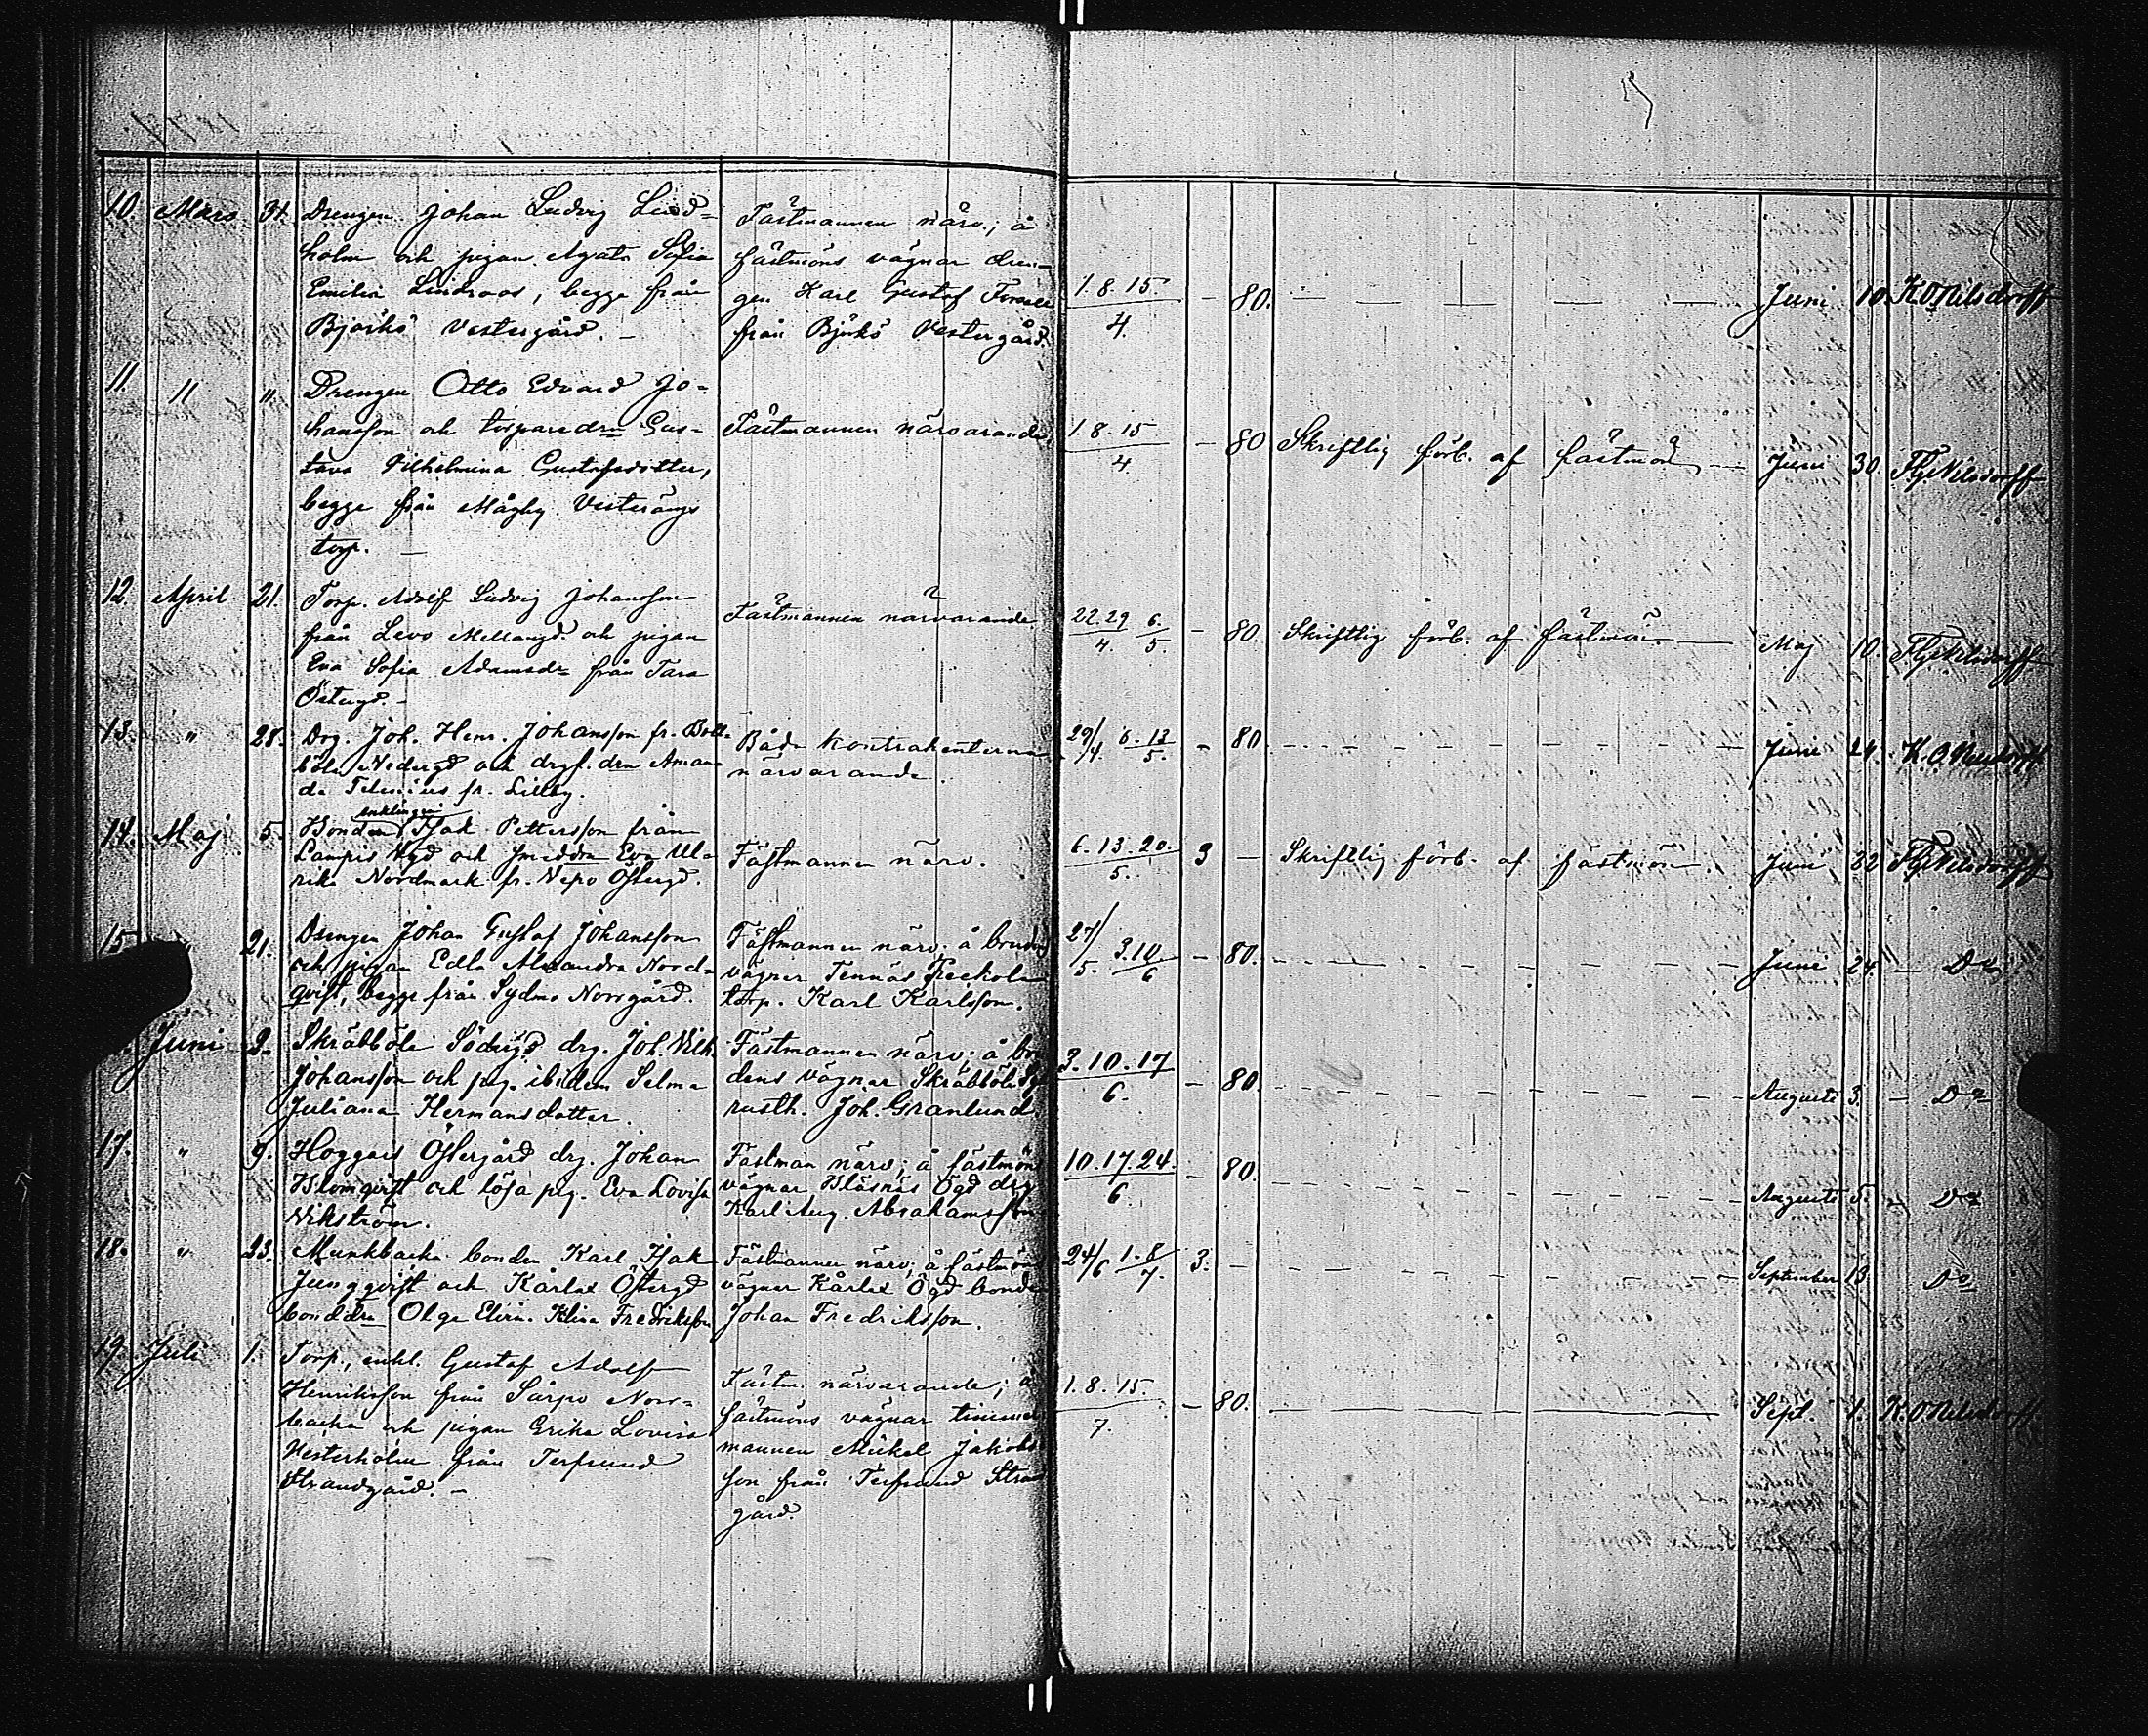 10. Mars 31. Drengen Johan Ludvig Lind=
holm och pigan Agata Sofia
Emilia Lindroos, begge från
Björkö Vestergård. –
Fästmannen närv.; å
fästmöns vägnar dren-
gen Karl Gustaf
från Björkö Vestergård.
1. 8. 15.
4.
– 80. – Juni 10. K O Nilsdorff
11. " " Drengen Otto Edvard Jo-
hansson och torparedrn Gus-
tava Vilhelmina Gustafsdotter,
begge från Mågby Vesterängs
torp. –
Fästmannen närvarande.
1. 8. 15
4
– 80 Skriftlig förb. af fästmön – Juni 30. Nilsdorff
12. April 21. Torp. Adolf Ludvig Johansson
från Levo Mellangd. och pigan
Eva Sofia Adamsdr från Tara
Östergd. –
Fästmannen närvarande.
22. 29 6.
4. 5.
– 80. Skriftlig förb. af fästmön – Maj 10. Nilsdorff
13. " 28. Drg. Joh. Henr. Johansson fr. Bott-
böle Nedergd och drgf. drn Aman-
da fr. Lilby.
Båda kontrahenterna
närvarande.
29/4. 6. 13
5.
– 80. – Juni 24. K. O Nilsdorff
14. Maj 5. enklingen
Bonden Isak Pettersson från
Lampis Ngd och smeddrn Eva Ul-
rika Nordmark fr. Vepo Östergd.
Fästmannen närv.
6. 13. 20.
5.
3 – Skriftlig förb. af fästmön Juni 22 Nilsdorff
15 21. Drengen Johan Gustaf Johansson
och pigan Edla Alexandra Nord-
qvist, begge från Sydmo Norrgård.
Fästmannen närv. å brudens
vägnar Tennäs
torp. Karl Karlsson.
27/5. 3. 10
6
– 80. – Juni 24. – Do
Juni 2. Skräbböle Södergd drg. Joh. Vilh.
Johansson och pig. ibidem Selma
Juliana Hermansdotter.
Fästmannen närv.; å bru
dens vägnar Skräbböle
rusth. Joh. Granlund.
3. 10. 17
6.
– 80. – Augusti 3. – Do
17. " 9. Hoggais Östergård drg. Johan
Blomqvist och lösa pig. Eva Lovisa
Vikström.
Fästman närv; å fästmöns
vägnar Bläsnäs Ögd drg
Karl Aug. Abrahamsson
10. 17. 24.
6
– 80. – Augusti 5. – Do
18. " 23. Munkbacka bonden Karl Isak
Jungqvist och Kårlax Östergd
bonddrn Olga Elvira Fredriksson
Fästmannen närv; å fästmöns
vägnar Kårlax Ögd bonde
Johan Fredriksson.
24/6 1. 8
7.
3. – September 13. Do
19. Juli 1. Torp., enkl. Gustaf Adolf
Henriksson från Sarpo Norr-
backa och pigan Erika Lovisa
Vesterholm från Terfsund
Strandgård. –
Fästm. närvarande; å
fästmöns vägnar timmer
mannen Mickel Jakobs
son från Terfsund Stran
gård.
1. 8. 15.
7.
– 80. – Sept. 1. K. O Nilsdorff